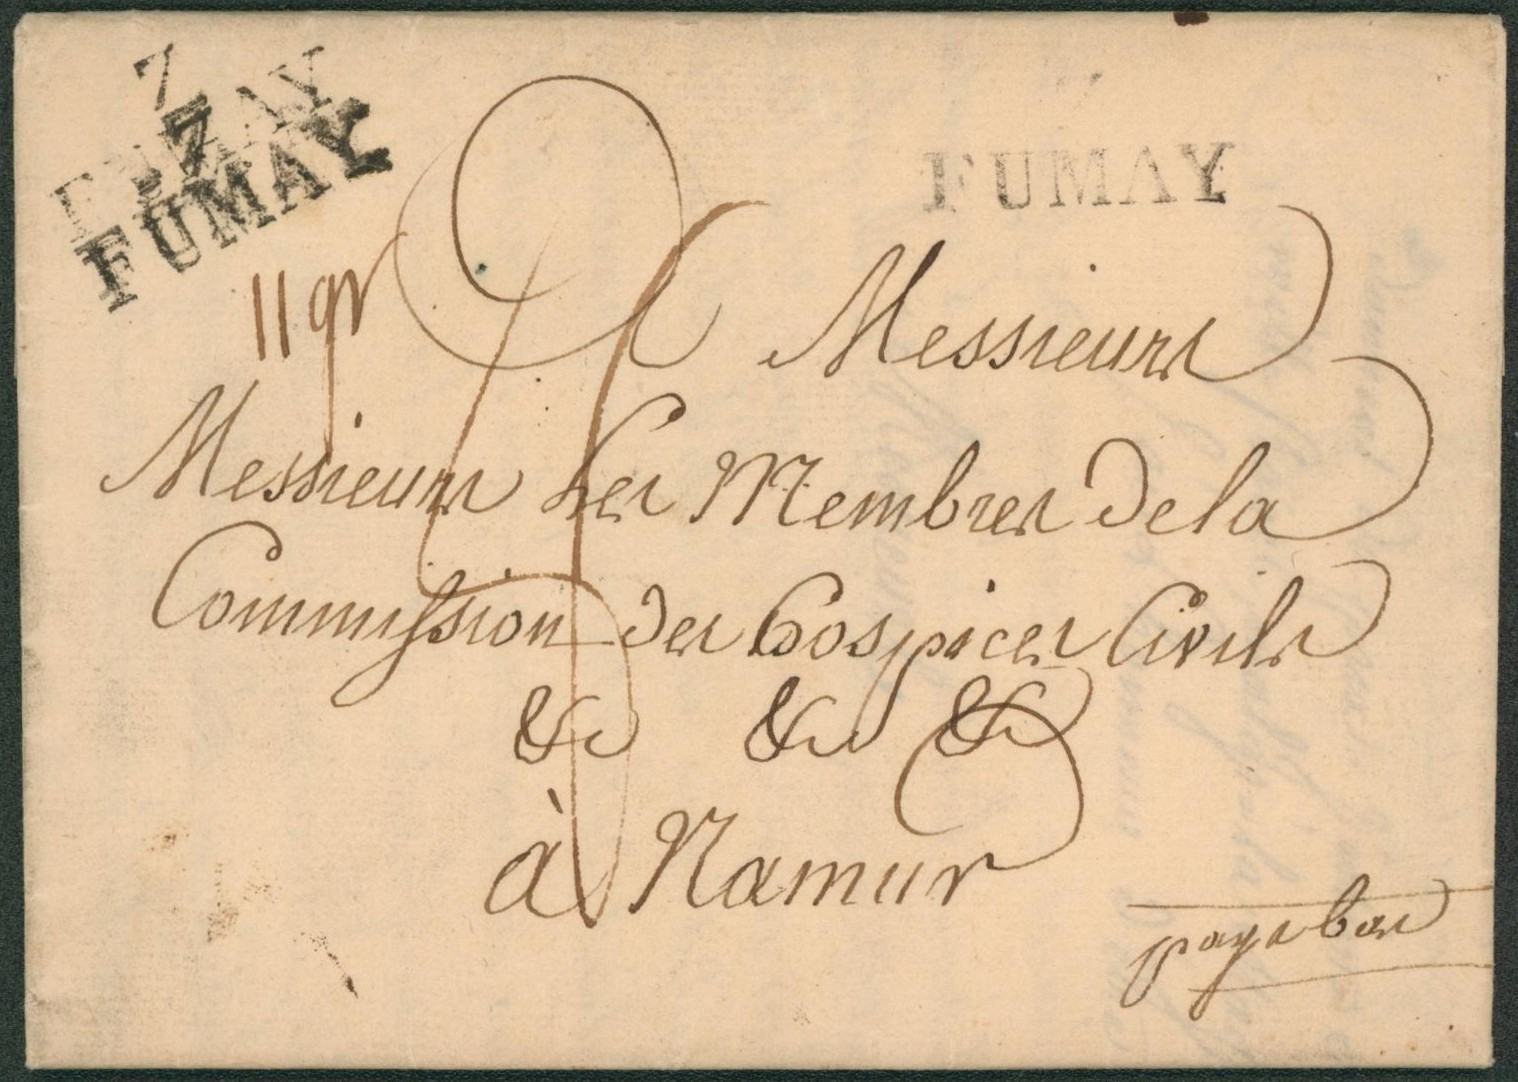 7
FUMAY
7
FUMAY
FUMAY
11 gr
Messieurs
Messieurs Les Membres de la
Commission des hospices Civils
&c &c &c
à Namur
pays bas